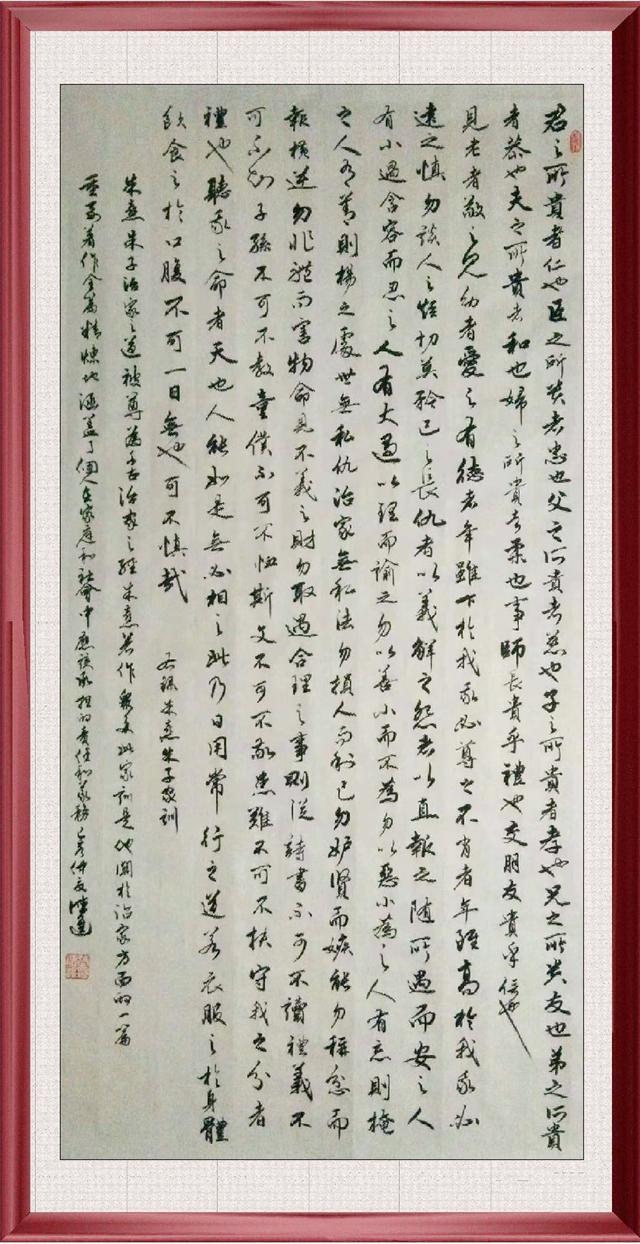 君之所貴者仁也臣之所貴者忠也父之所貴者慈也子之所貴者孝也兄之所貴者友也弟之所貴
者恭也夫之所貴者和也婦之所貴者柔也事師長貴乎禮也交朋友貴乎信也
見老者敬之見幼者愛之有德者年雖下於我我必尊之不肖者年雖高於我我必
遠之慎勿談人之短切莫矜己之長仇者以義解之怨者以直報之隨所遇而安之人
有小過含容而忍之人有大過以理而諭之勿以善小而不為勿以惡小為之人有惡則掩
之人有善則揚之處世無私仇治家無私法勿損人而利己勿妒賢而嫉能勿稱忿而
報橫逆勿非禮而害物命見不義之財勿取遇合理之事則從詩書不可不讀禮義不
可不知子孫不可不教童僕不可不恤斯文不可不敬患難不可不扶守我之分者
禮也聽我之命者天也人能如是無必相之此乃日用常行之道若衣服之於身體
飲食之於口腹不可一日無也可不慎哉
右錄朱熹朱子家訓
朱熹朱子治家之道被尊為千古治家之經朱熹著作眾多此家訓是他關於治家方面的一篇
重要著作全篇精煉地涵蓋了個人在家庭和社會中應該承擔的責任和義務